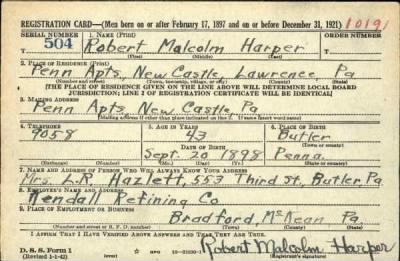 REGISTRATION CARD—(Men born on or after February 17, 1897 and on or before December 31, 1921)
SERIAL NUMBER 1. NAME (Print) ORDER NUMBER
504 Robert Malcolm Harper 10191
(First) (Middle) (Last)
2. PLACE OF RESIDENCE (Print)
Penn Apts, New Castle, Lawrence, Pa
(Number and street) (Town, township, village, or city) (County) (State)
[THE PLACE OF RESIDENCE GIVEN ON THE LINE ABOVE WILL DETERMINE LOCAL BOARD
JURISDICTION; LINE 2 OF REGISTRATION CERTIFICATE WILL BE IDENTICAL]
3. MAILING ADDRESS
Penn Apts, New Castle, Pa
[Mailing address if other than place indicated on line 2. If same insert word same]
4. TELEPHONE 5. AGE IN YEARS 6. PLACE OF BIRTH
9058 43 Butler
DATE OF BIRTH (Town or county)
Sept. 20 1898 Penna.
(Exchange) (Number) (Mo.) (Day) (Yr.) (State or country)
7. NAME AND ADDRESS OF PERSON WHO WILL ALWAYS KNOW YOUR ADDRESS
Mrs. L.R. Hazlett, 553 Third St, Butler, Pa
8. EMPLOYER'S NAME AND ADDRESS
Kendall Refining Co
9. PLACE OF EMPLOYMENT OR BUSINESS
Bradford, McKean Pa.
(Number and street or R. F. D. number) (Town) (County) (State)
I AFFIRM THAT I HAVE VERIFIED ABOVE ANSWERS AND THAT THEY ARE TRUE.
D. S. S. Form 1
(Revised 1-1-42) (over)
Robert Malcolm Harper
(Registrant's signature)